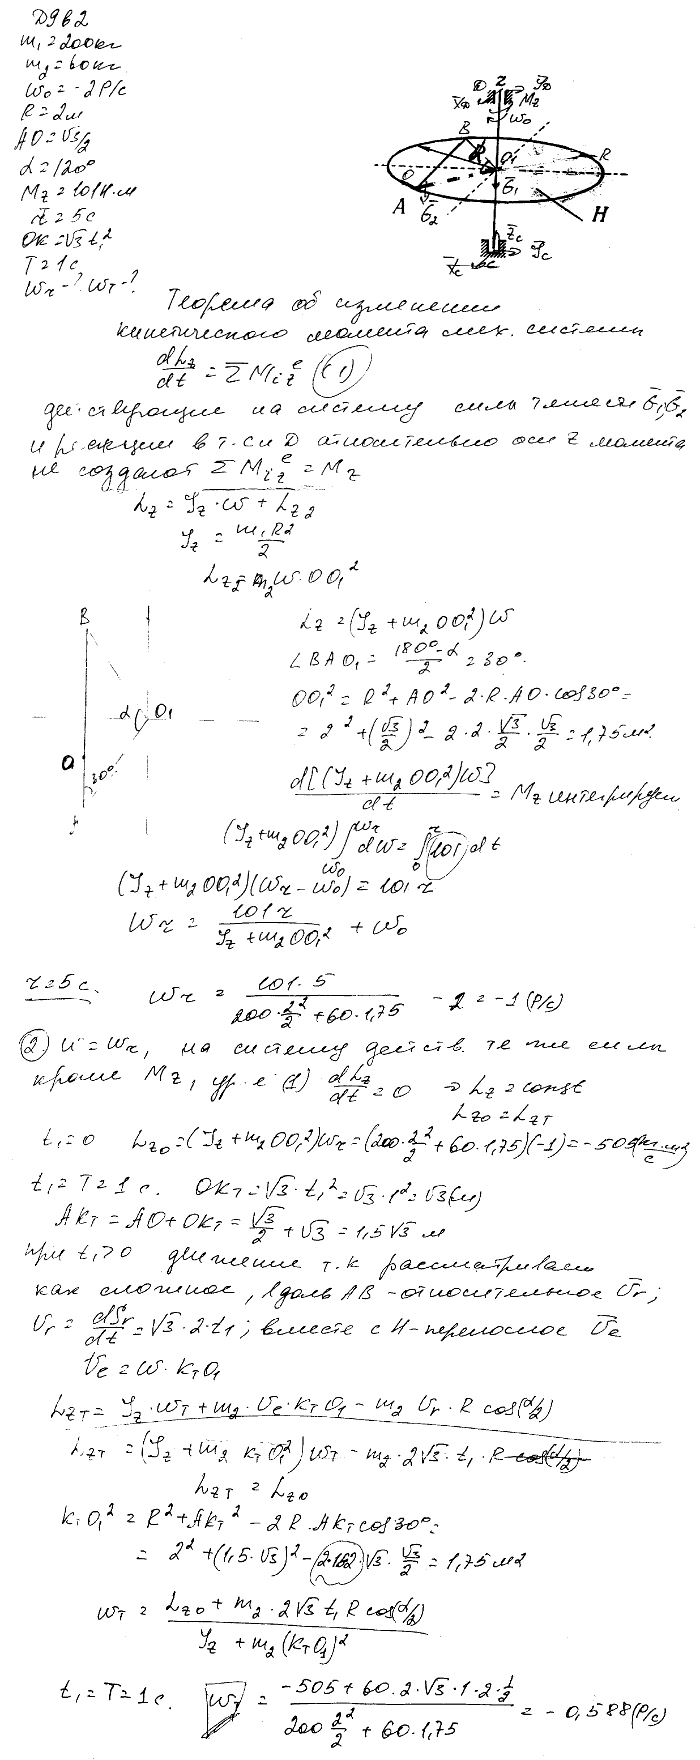 Д9 б2
m₁ = 200кг
m₂ = 60кг
ω₀ = -2 Р/с
R = 2м
AO = √3/2
α = 120°
Mz = 101 Н·м
τ = 5 с
OK = √3 t₁²
T = 1 с
ωτ - ? ωT - ?
Z
D
Mz
ω₀
B
R
O₁
R
O
A
G₂
G₁
H
Zc
Xc
C
Yc
Теорема об изменении
кинетического момента мех. системы
dLz/dt = Σ Miz^e (1)
действующие на систему силы тяжести G₁, G₂
и реакции в т. C и D относительно оси z момента
не создают Σ Miz^e = Mz
Lz = Jz·ω + Lz2
Jz = m₁R²/2
Lz2 = m₂ω·OO₁²
B
α
O₁
O
30°
A
Lz = (Jz + m₂OO₁²)ω
∠BAO₁ = (180° - α)/2 = 30°.
OO₁² = R² + AO² - 2·R·AO·cos30° =
= 2² + (√3/2)² - 2·2·√3/2·√3/2 = 1,75 м²
d[(Jz + m₂OO₁²)ω]/dt = Mz интегрируем
(Jz + m₂OO₁²) ∫ω₀^ωτ dω = ∫₀^τ (101) dt
(Jz + m₂OO₁²)(ωτ - ω₀) = 101 τ
ωτ = 101τ/(Jz + m₂OO₁²) + ω₀
τ = 5 с. ωτ = 101·5/(200·2²/2 + 60·1,75) - 2 = -1 (Р/с)
(2) ω = ωτ, на систему действ. те же силы
кроме Mz, ур-е (1) dLz/dt = 0 ⇒ Lz = const
Lz0 = LzT
t₁ = 0 Lz0 = (Jz + m₂OO₁²)ωτ = (200·2²/2 + 60·1,75)(-1) = -505 (кг·м²/с)
t₁ = T = 1 с. OKT = √3·t₁² = √3·1² = √3 (м)
AKT = AO + OKT = √3/2 + √3 = 1,5√3 м
при t₁ > 0 движение т. K рассматриваем
как сложное, вдоль AB - относительное Vr;
Vr = dSr/dt = √3·2·t₁; вместе с H - переносное Ve
Ve = ω·KTO₁
LzT = Jz·ωT + m₂·Ve·KTO₁ - m₂ Vr·R cos(α/2)
LzT = (Jz + m₂ KTO₁²) ωT - m₂·2√3·t₁·R cos(α/2)
LzT = Lz0
KTO₁² = R² + AKT² - 2R·AKT cos30° =
= 2² + (1,5·√3)² - (2·1,5·2)·√3·√3/2 = 1,75 м²
ωT = (Lz0 + m₂·2√3 t₁ R cos(α/2))/(Jz + m₂(KTO₁)²)
t₁ = T = 1 с. ωT = (-505 + 60·2·√3·1·2·1/2)/(200 2²/2 + 60·1,75) = -0,588 (Р/с)